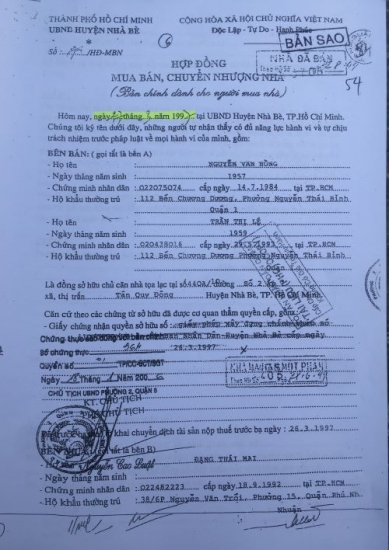 THÀNH PHỐ HỒ CHÍ MINH
UBND HUYỆN NHÀ BÈ
CỘNG HÒA XÃ HỘI CHỦ NGHĨA VIỆT NAM
Độc Lập - Tự Do - Hạnh Phúc
BẢN SAO
Số : /HĐ-MBN
NHÀ ĐÃ BÁN
54
HỢP ĐỒNG
MUA BÁN, CHUYỂN NHƯỢNG NHÀ
(Bản chính dành cho người mua nhà)
Hôm nay, ngày tháng năm 199 tại UBND Huyện Nhà Bè, TP.Hồ Chí Minh.
Chúng tôi ký tên dưới đây, những người tự nhận thấy có đủ năng lực hành vi và tự chịu
trách nhiệm trước pháp luật về mọi hành vi của mình, gồm:
BÊN BÁN: ( gọi tắt là bên A)
- Họ tên NGUYỄN VĂN HÙNG
- Ngày tháng năm sinh 1957
- Chứng minh nhân dân : 022075074 cấp ngày 14.7.1984 tại TP.HCM
- Hộ khẩu thường trú : 112 Bến Chương Dương, Phường Nguyễn Thái Bình
Quận 1
- Họ tên TRẦN THỊ LỆ
- Ngày tháng năm sinh 1959
- Chứng minh nhân dân : 020438016 cấp ngày tại TP.HCM
- Hộ khẩu thường trú : 112 Bến Chương Dương Phường Nguyễn Thái Bình
Quận 1
Là đồng sở hữu căn nhà tọa lạc tại số 440A/ Đường Số 2
xã, thị trấn Tân Quy Đông Huyện Nhà Bè, TP. Hồ Chí Minh.
Căn cứ theo các chứng từ sở hữu đã được cơ quan thẩm quyền cấp, gồm :
- Giấy chứng nhận quyền sở hữu số : giấy phép xây dựng
Chứng thực
Số chứng thực 26.3.1997
Quyển số TP/CC-SCT/SGT
Ngày tháng năm 200
CHỦ TỊCH UBND PHƯỜNG 2, QUẬN 8
KT. CHỦ TỊCH
PHÓ CHỦ TỊCH
khai chuyển dịch tài sản nộp thuế trước bạ ngày : 26.3.1992
(gọi tắt là bên B)
Nguyễn Cao Luật
ĐẶNG THÁI MAI
- Ngày tháng năm sinh
- Chứng minh nhân dân : 022482223 cấp ngày 18.9.1992 tại TP.HCM
- Hộ khẩu thường trú : 38/6P Nguyễn Văn Trỗi, Phường 15, Quận Phú Nh
Nhuận